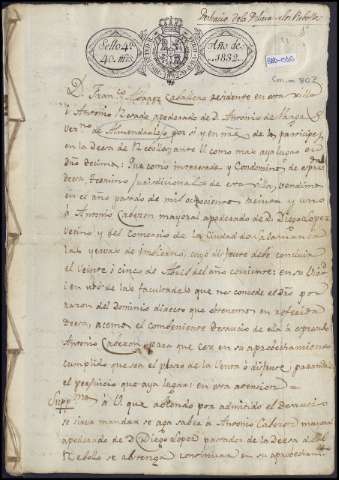 Sello 4º
40 mrs.
Año de
1832
D. Fran.co
residente en esta villa
i Antonio apoderado de D. Antonio de
Ven.no de Almendralejo por si y en nre. de los participes
en la deesa de Rebollo, ante V. como mas aya lugar en
dro. decimos: Que como interesado y Condominos de espre.da
deesa, termino jurisdiccional de esta villa, vendimos
en el año pasado de mil ochocientos treinta y uno
à Antonio Cabezon mayoral apoderado de D. Diego Lopez
vecino y del Comercio de la Ciudad de Salamanca
las yervas de Imbierno, cuyo disfrute debe concluir
el veinte i cinco de Abril del año corriente: en su
i en uso de las facultades que nos concede el dro. por
razon del Dominio directo que obtenemos en referida
deesa, acemos el combeniente desaucio de ella à espresado
Antonio Cabezon para que cese en su aprovechamiento
cumplido que sea el plazo de la Venta ò disfrute, parandole
el perjuicio que aya lugar: en esta atencion =
Supp.mos à V. que abiendo por admitido el Desaucio
se sirva mandar se aga saber a Antonio Cabezon mayoral
apoderado de D. Diego Lopez pastador de la Deesa del
Rebollo se abstenga continuar en su aprovechami